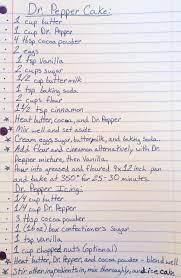 Dr. Pepper Cake:
- 1 cup butter
- 1 cup Dr. Pepper
- 4 tbsp cocoa powder
- 2 eggs
- 1 tsp vanilla
- 2 cups sugar
- 1/2 cup buttermilk
- 1 tsp baking soda
- 2 cups flour
- 1 1/2 tsp cinnamon
* Heat butter, cocoa, and Dr. Pepper
* Mix well and set aside
* Cream eggs, sugar, buttermilk, and baking soda.
* Add flour and cinnamon alternatively, with Dr.
Pepper mixture, then Vanilla.
* Pour into greased and floured 9x12 inch pan
and bake at 350° for 25-30 minutes
Dr. Pepper Icing:
- 1/4 cup butter
- 1/4 cup Dr. Pepper
- 3 tbsp cocoa powder
- 1 (16oz) box confectioner's sugar
- 1 tsp vanilla
- 1 cup chopped nuts (optional)
* Heat butter, Dr. Pepper, and cocoa powder - blend well
* Stir other ingredients in, mix thoroughly, and ice cake